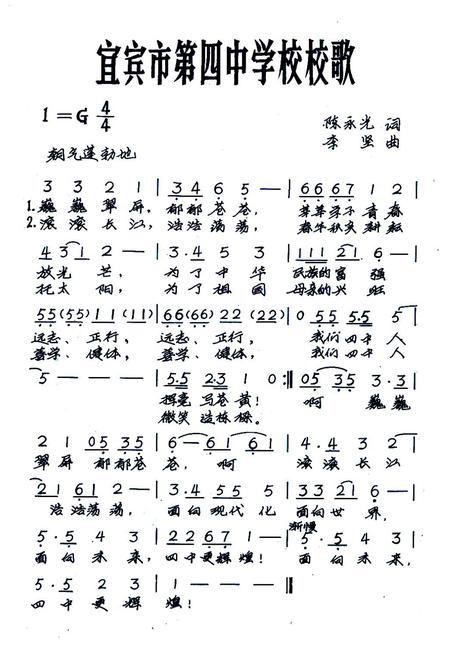 宜宾市第四中学校校歌
1=G 4/4
陈永光 词
李坚 曲
朝气蓬勃地
3 3 2 1 | 3·4 6 5 — | 66 67 1 2 |
1. 巍巍翠屏,郁郁苍苍, 莘莘学子青春
2. 滚滚长江,浩浩荡荡, 春华秋实耕耘
4 3 1 2 — | 3·4 5 3 | 111 21 6 — |
放光芒, 为了中华 民族的富强
托太阳, 为了祖国 母亲的兴旺
55(55) 11(11) | 66(66) 22(22) | 0 55 5·5 5 |
远志、正行, 远志、正行, 我们四中人
善学、健体, 善学、健体, 我们四中人
5 — — — | 5·5 2·3 1 0 :‖ 05 35 3·3 |
挥毫写苍黄! 啊 巍巍
微笑造栋梁。
2 1 05 35 | 6 — 61 61 | 4·4 3 2 |
翠屏 郁郁苍苍, 啊 滚滚长江
21 61 2 — | 3·4 55 6 | 33 21 6 — |
浩浩荡荡, 面向现代化 面向世界,
渐慢
5·5 4 3 | 22 67 1 — | 5·5 4 3 |
面向未来, 四中更辉煌! 面向未来,
5·5 2 3 | 1 — — — ‖
四中更辉煌!